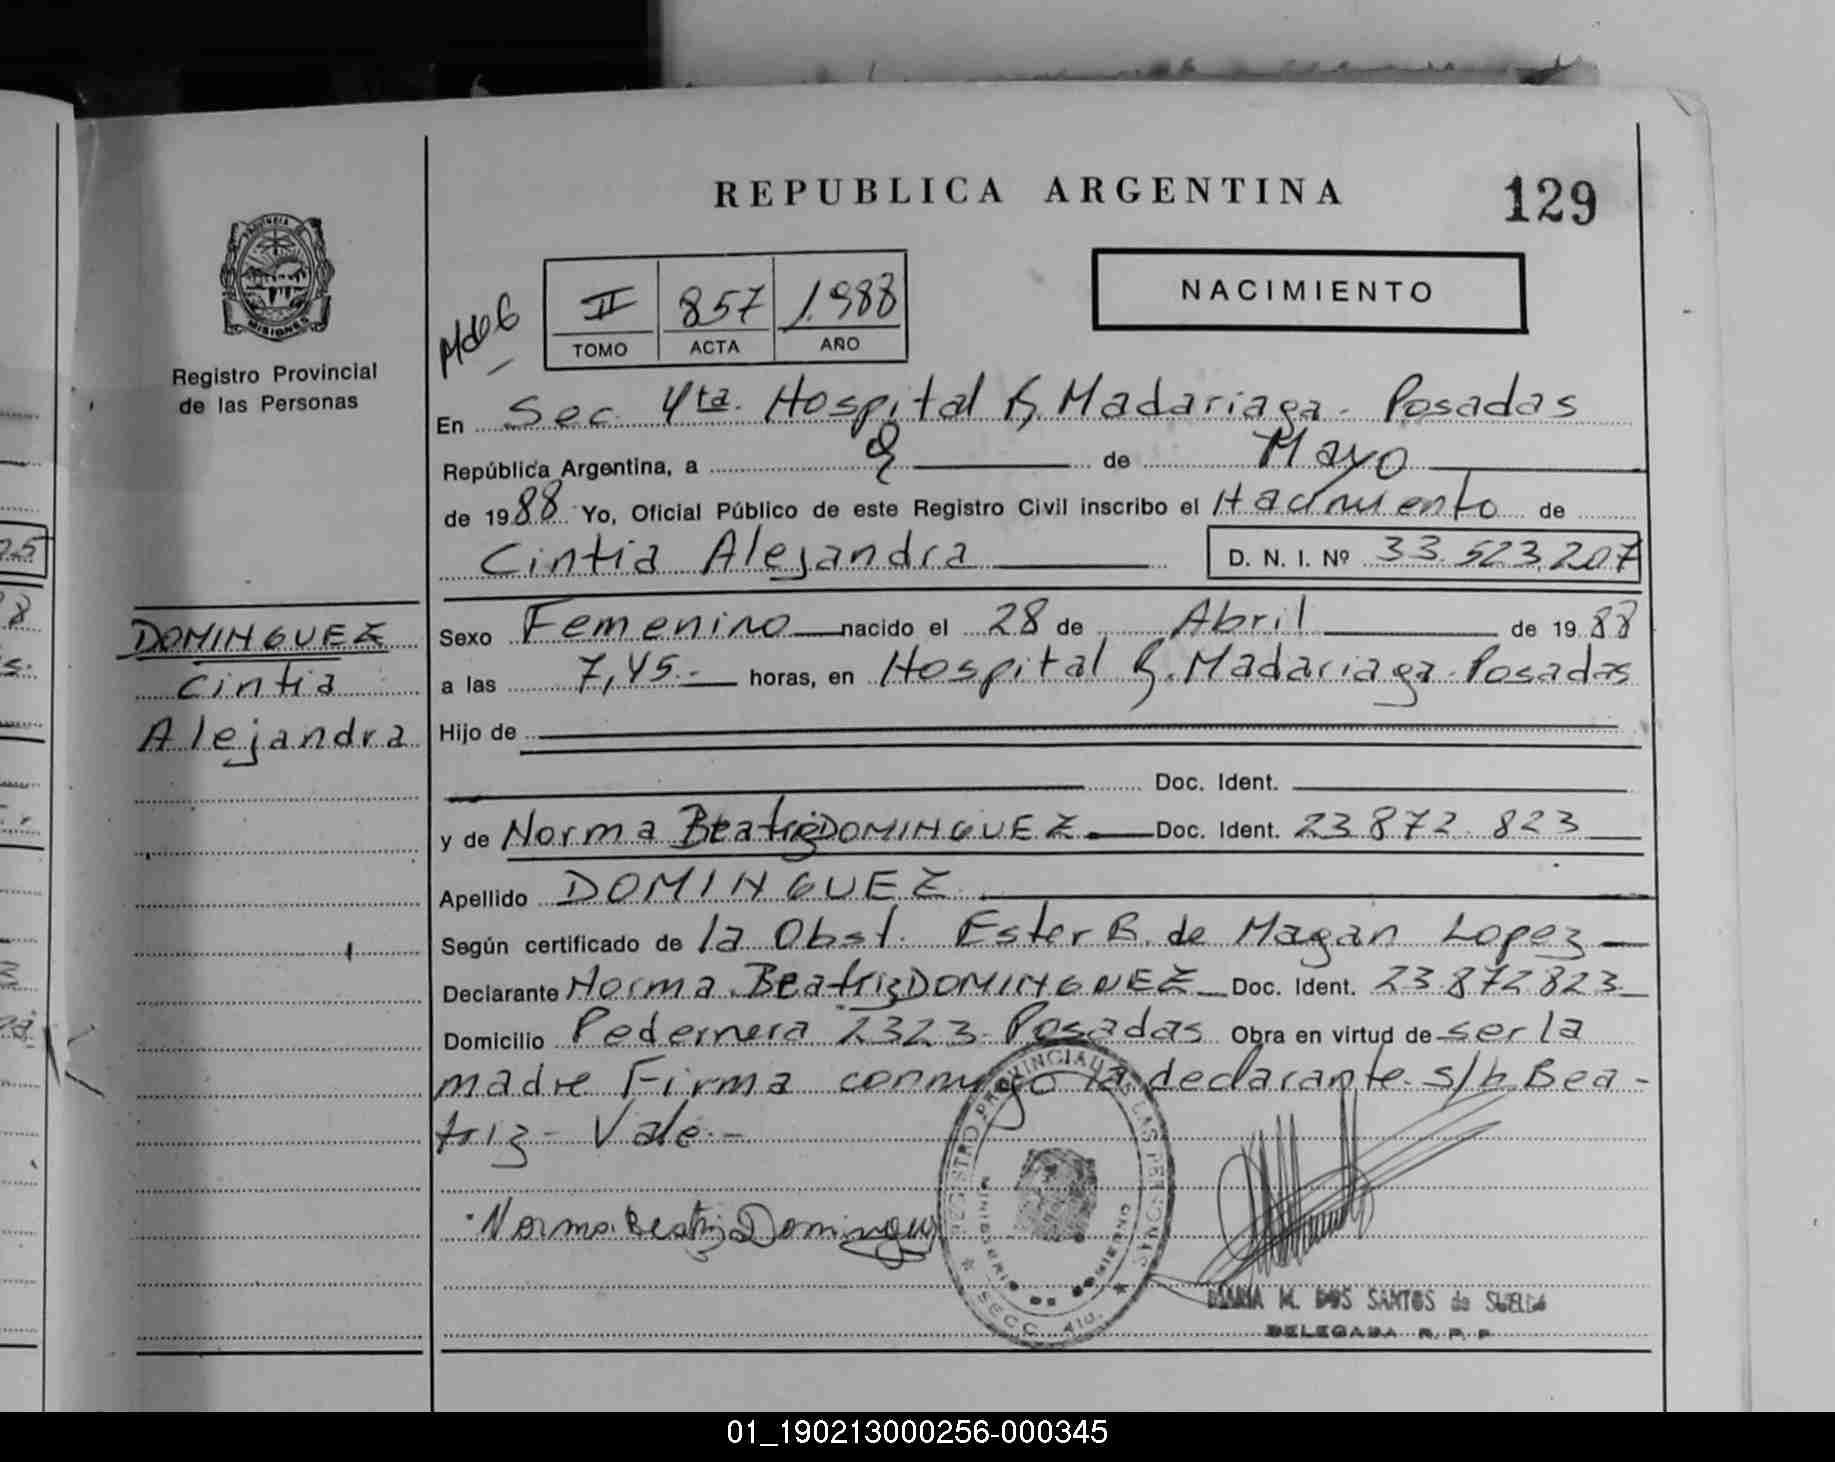 REPUBLICA ARGENTINA
129
NACIMIENTO
II 857 1.988
TOMO ACTA AÑO
PROVINCIA DE
MISIONES
Registro Provincial
de las Personas
En Sec 4ta. Hospital R. Madariaga - Posadas
República Argentina, a 2 de Mayo
de 1988 Yo, Oficial Público de este Registro Civil inscribo el Nacimiento de
Cintia Alejandra D. N. I. Nº 33.523.207
DOMINGUEZ
Cintia
Alejandra
Sexo Femenino nacido el 28 de Abril de 1988
a las 7,45.- horas, en Hospital R. Madariaga - Posadas
Hijo de
Doc. Ident.
y de Norma Beatriz DOMINGUEZ Doc. Ident. 23.872.823
Apellido DOMINGUEZ
Según certificado de la Obst. Ester R. de Magan Lopez
Declarante Norma Beatriz DOMINGUEZ Doc. Ident. 23.872.823
Domicilio Pedernera 2323 - Posadas Obra en virtud de ser la
madre Firma conmigo la declarante. s/b. Bea-
triz - Vale.-
Norma Beatriz Dominguez
REGISTRO PROVINCIAL DE LAS PERSONAS
SECC. 4ta.
M. DOS SANTOS de
DELEGADA R. P. P.
01_190213000256-000345